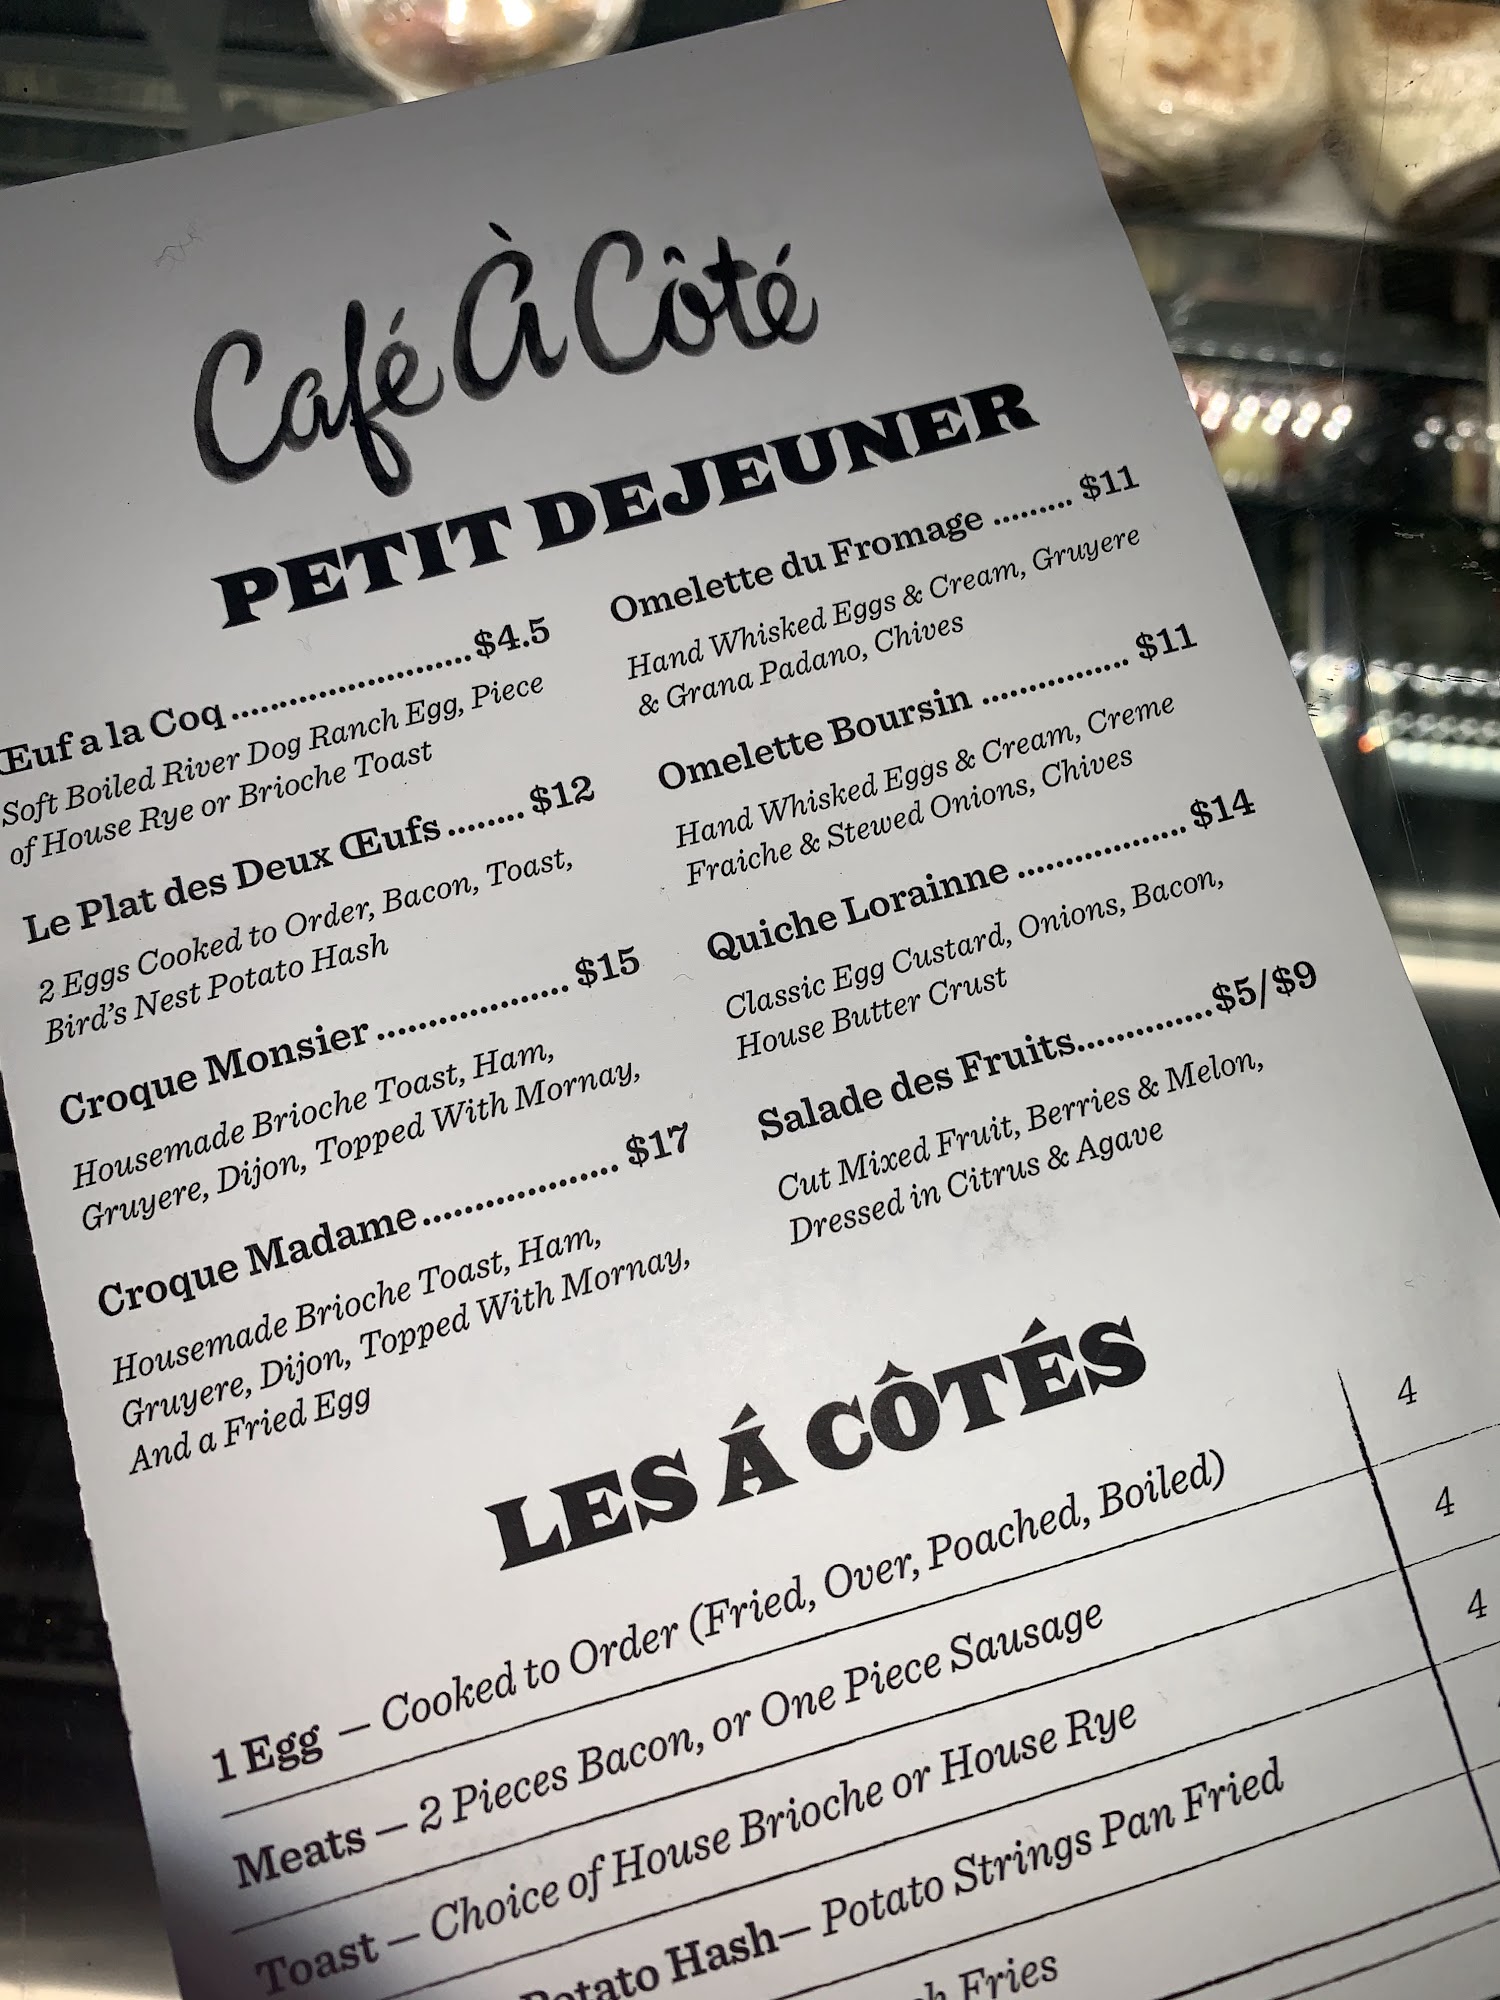 Café À Côté
PETIT DEJEUNER
Œuf a la Coq ........................ $4.5
Soft Boiled River Dog Ranch Egg, Piece
of House Rye or Brioche Toast
Le Plat des Deux Œufs ........ $12
2 Eggs Cooked to Order, Bacon, Toast,
Bird's Nest Potato Hash
Croque Monsier ................... $15
Housemade Brioche Toast, Ham,
Gruyere, Dijon, Topped With Mornay,
Croque Madame ................... $17
Housemade Brioche Toast, Ham,
Gruyere, Dijon, Topped With Mornay,
And a Fried Egg
Omelette du Fromage ......... $11
Hand Whisked Eggs & Cream, Gruyere
& Grana Padano, Chives
Omelette Boursin ................ $11
Hand Whisked Eggs & Cream, Creme
Fraiche & Stewed Onions, Chives
Quiche Lorainne .................. $14
Classic Egg Custard, Onions, Bacon,
House Butter Crust
Salade des Fruits.............. $5/$9
Cut Mixed Fruit, Berries & Melon,
Dressed in Citrus & Agave
LES Á CÔTÉS
1 Egg – Cooked to Order (Fried, Over, Poached, Boiled) 4
Meats – 2 Pieces Bacon, or One Piece Sausage 4
Toast – Choice of House Brioche or House Rye 4
Potato Hash – Potato Strings Pan Fried
Fries